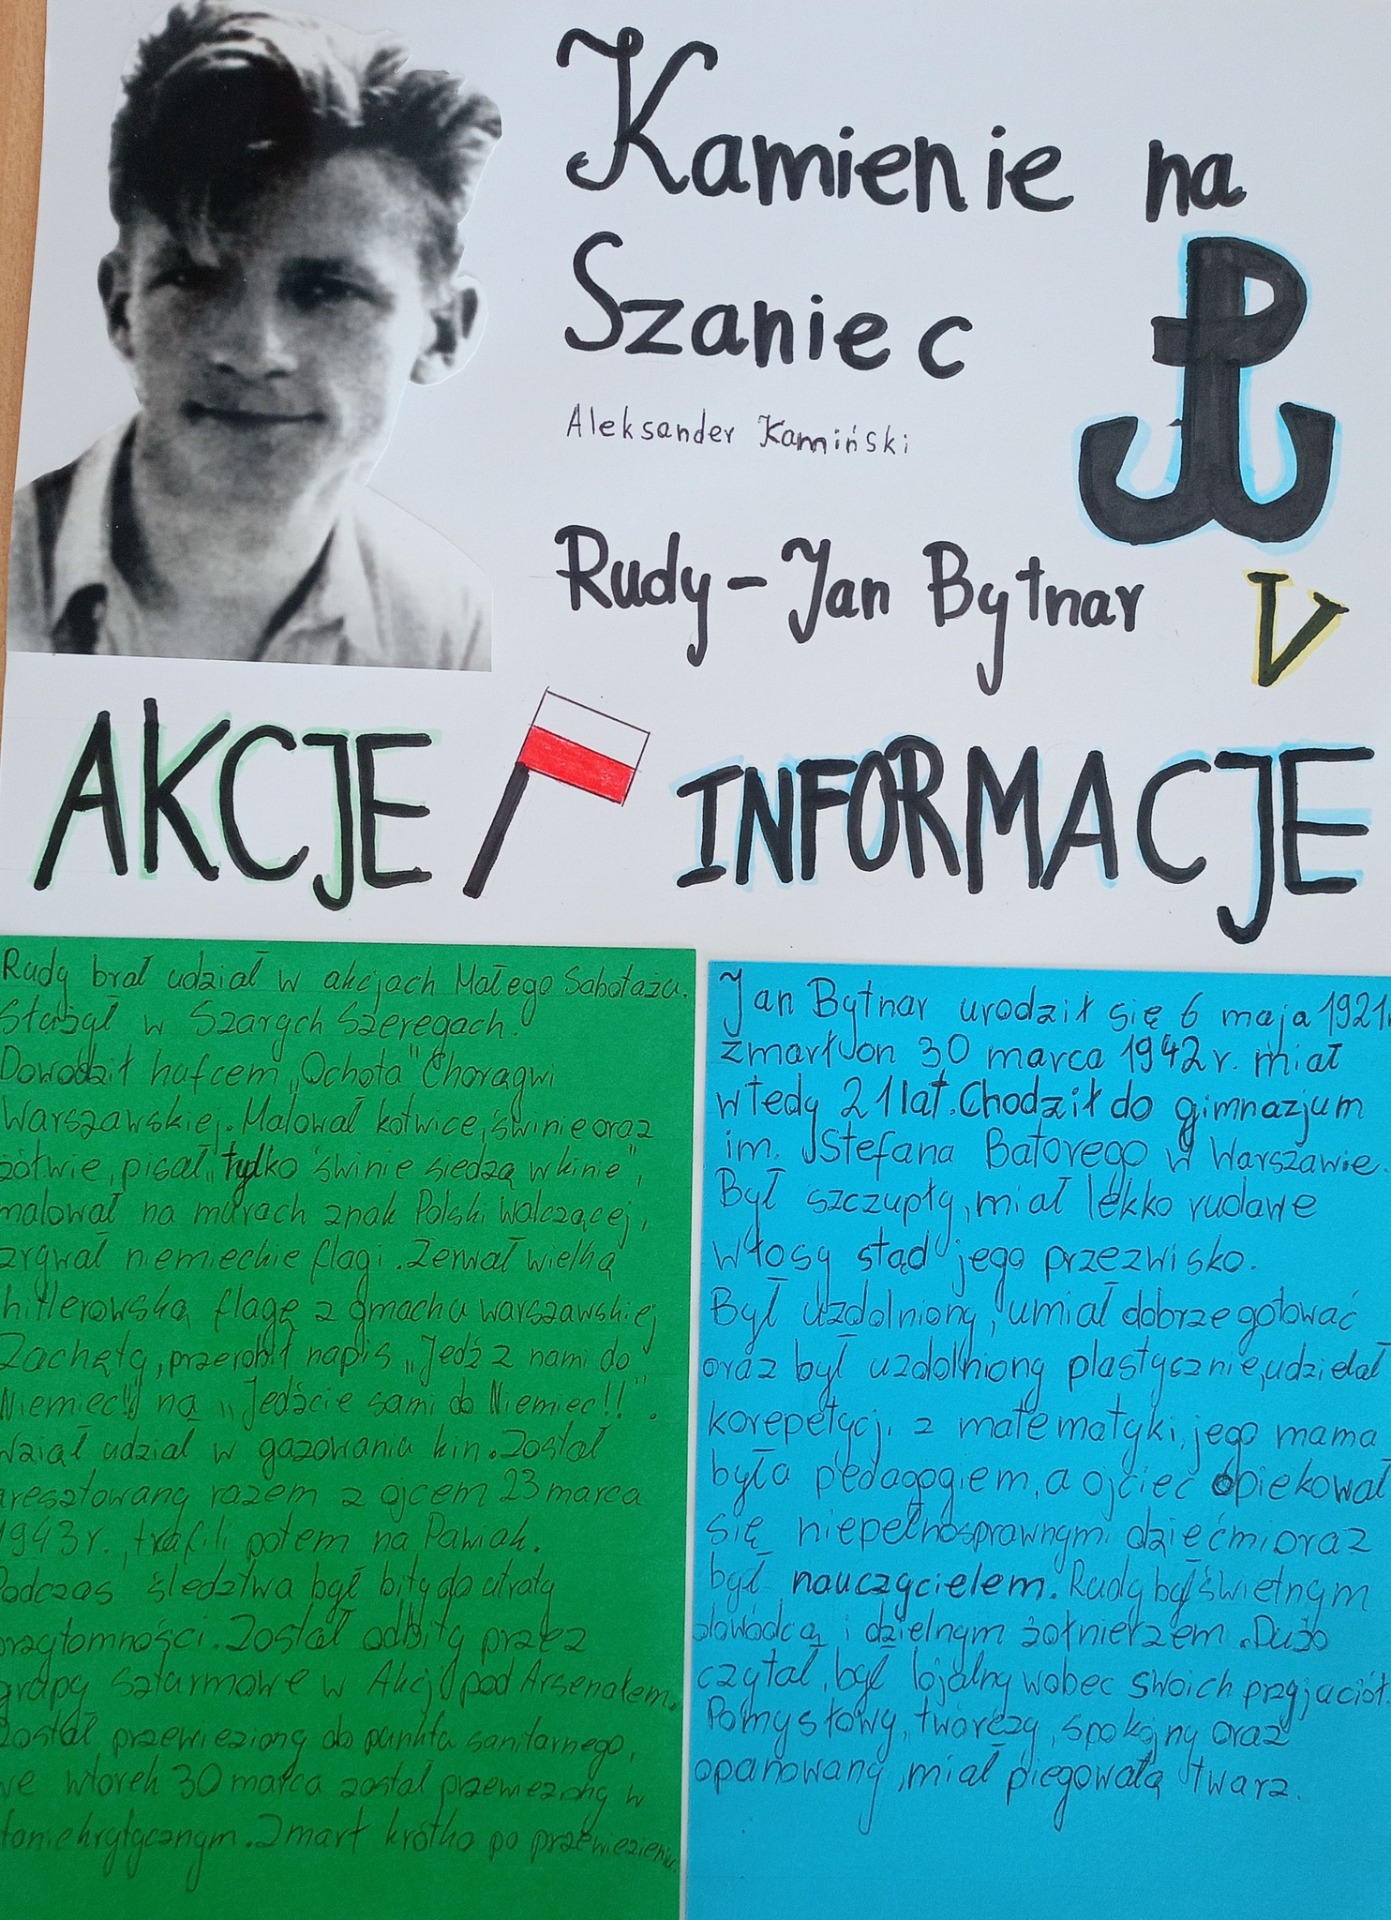 Kamienie na
Szaniec
Aleksander Kamiński
Rudy - Jan Bytnar
V
AKCJE
INFORMACJE
Rudy brał udział w akcjach Małego Sabotażu.
Służył w Szarych Szeregach.
Dowodził hufcem „Ochota" Chorągwi
Warszawskiej. Malował kotwice, świnie oraz
żółwie, pisał „tylko świnie siedzą w kinie",
malował na murach znak Polski Walczącej,
zrywał niemieckie flagi. Zerwał wielką
hitlerowską flagę z gmachu warszawskiej
Zachęty, przerobił napis „Jedź z nami do
Niemiec!!" na „Jedźcie sami do Niemiec!!".
Wziął udział w gazowaniu kin. Został
aresztowany razem z ojcem 23 marca
1943 r., trafili potem na Pawiak.
Podczas śledztwa był bity do utraty
przytomności. Został odbity przez
grupy szturmowe w Akcji pod Arsenałem.
Został przewieziony do punktu sanitarnego,
we wtorek 30 marca został przewieziony w
stanie krytycznym. Zmarł krótko po przewiezieniu
Jan Bytnar urodził się 6 maja 1921r.
zmarł on 30 marca 1942 r. miał
wtedy 21 lat. Chodził do gimnazjum
im. Stefana Batorego w Warszawie.
Był szczupły, miał lekko rudawe
włosy stąd jego przezwisko.
Był uzdolniony, umiał dobrze gotować
oraz był uzdolniony plastycznie, udzielał
korepetycji z matematyki, jego mama
była pedagogiem, a ojciec opiekował
się niepełnosprawnymi dziećmi oraz
był nauczycielem. Rudy był świetnym
dowódcą i dzielnym żołnierzem. Dużo
czytał, był lojalny wobec swoich przyjaciół.
Pomysłowy, twórczy, spokojny oraz
opanowany, miał piegowatą twarz.